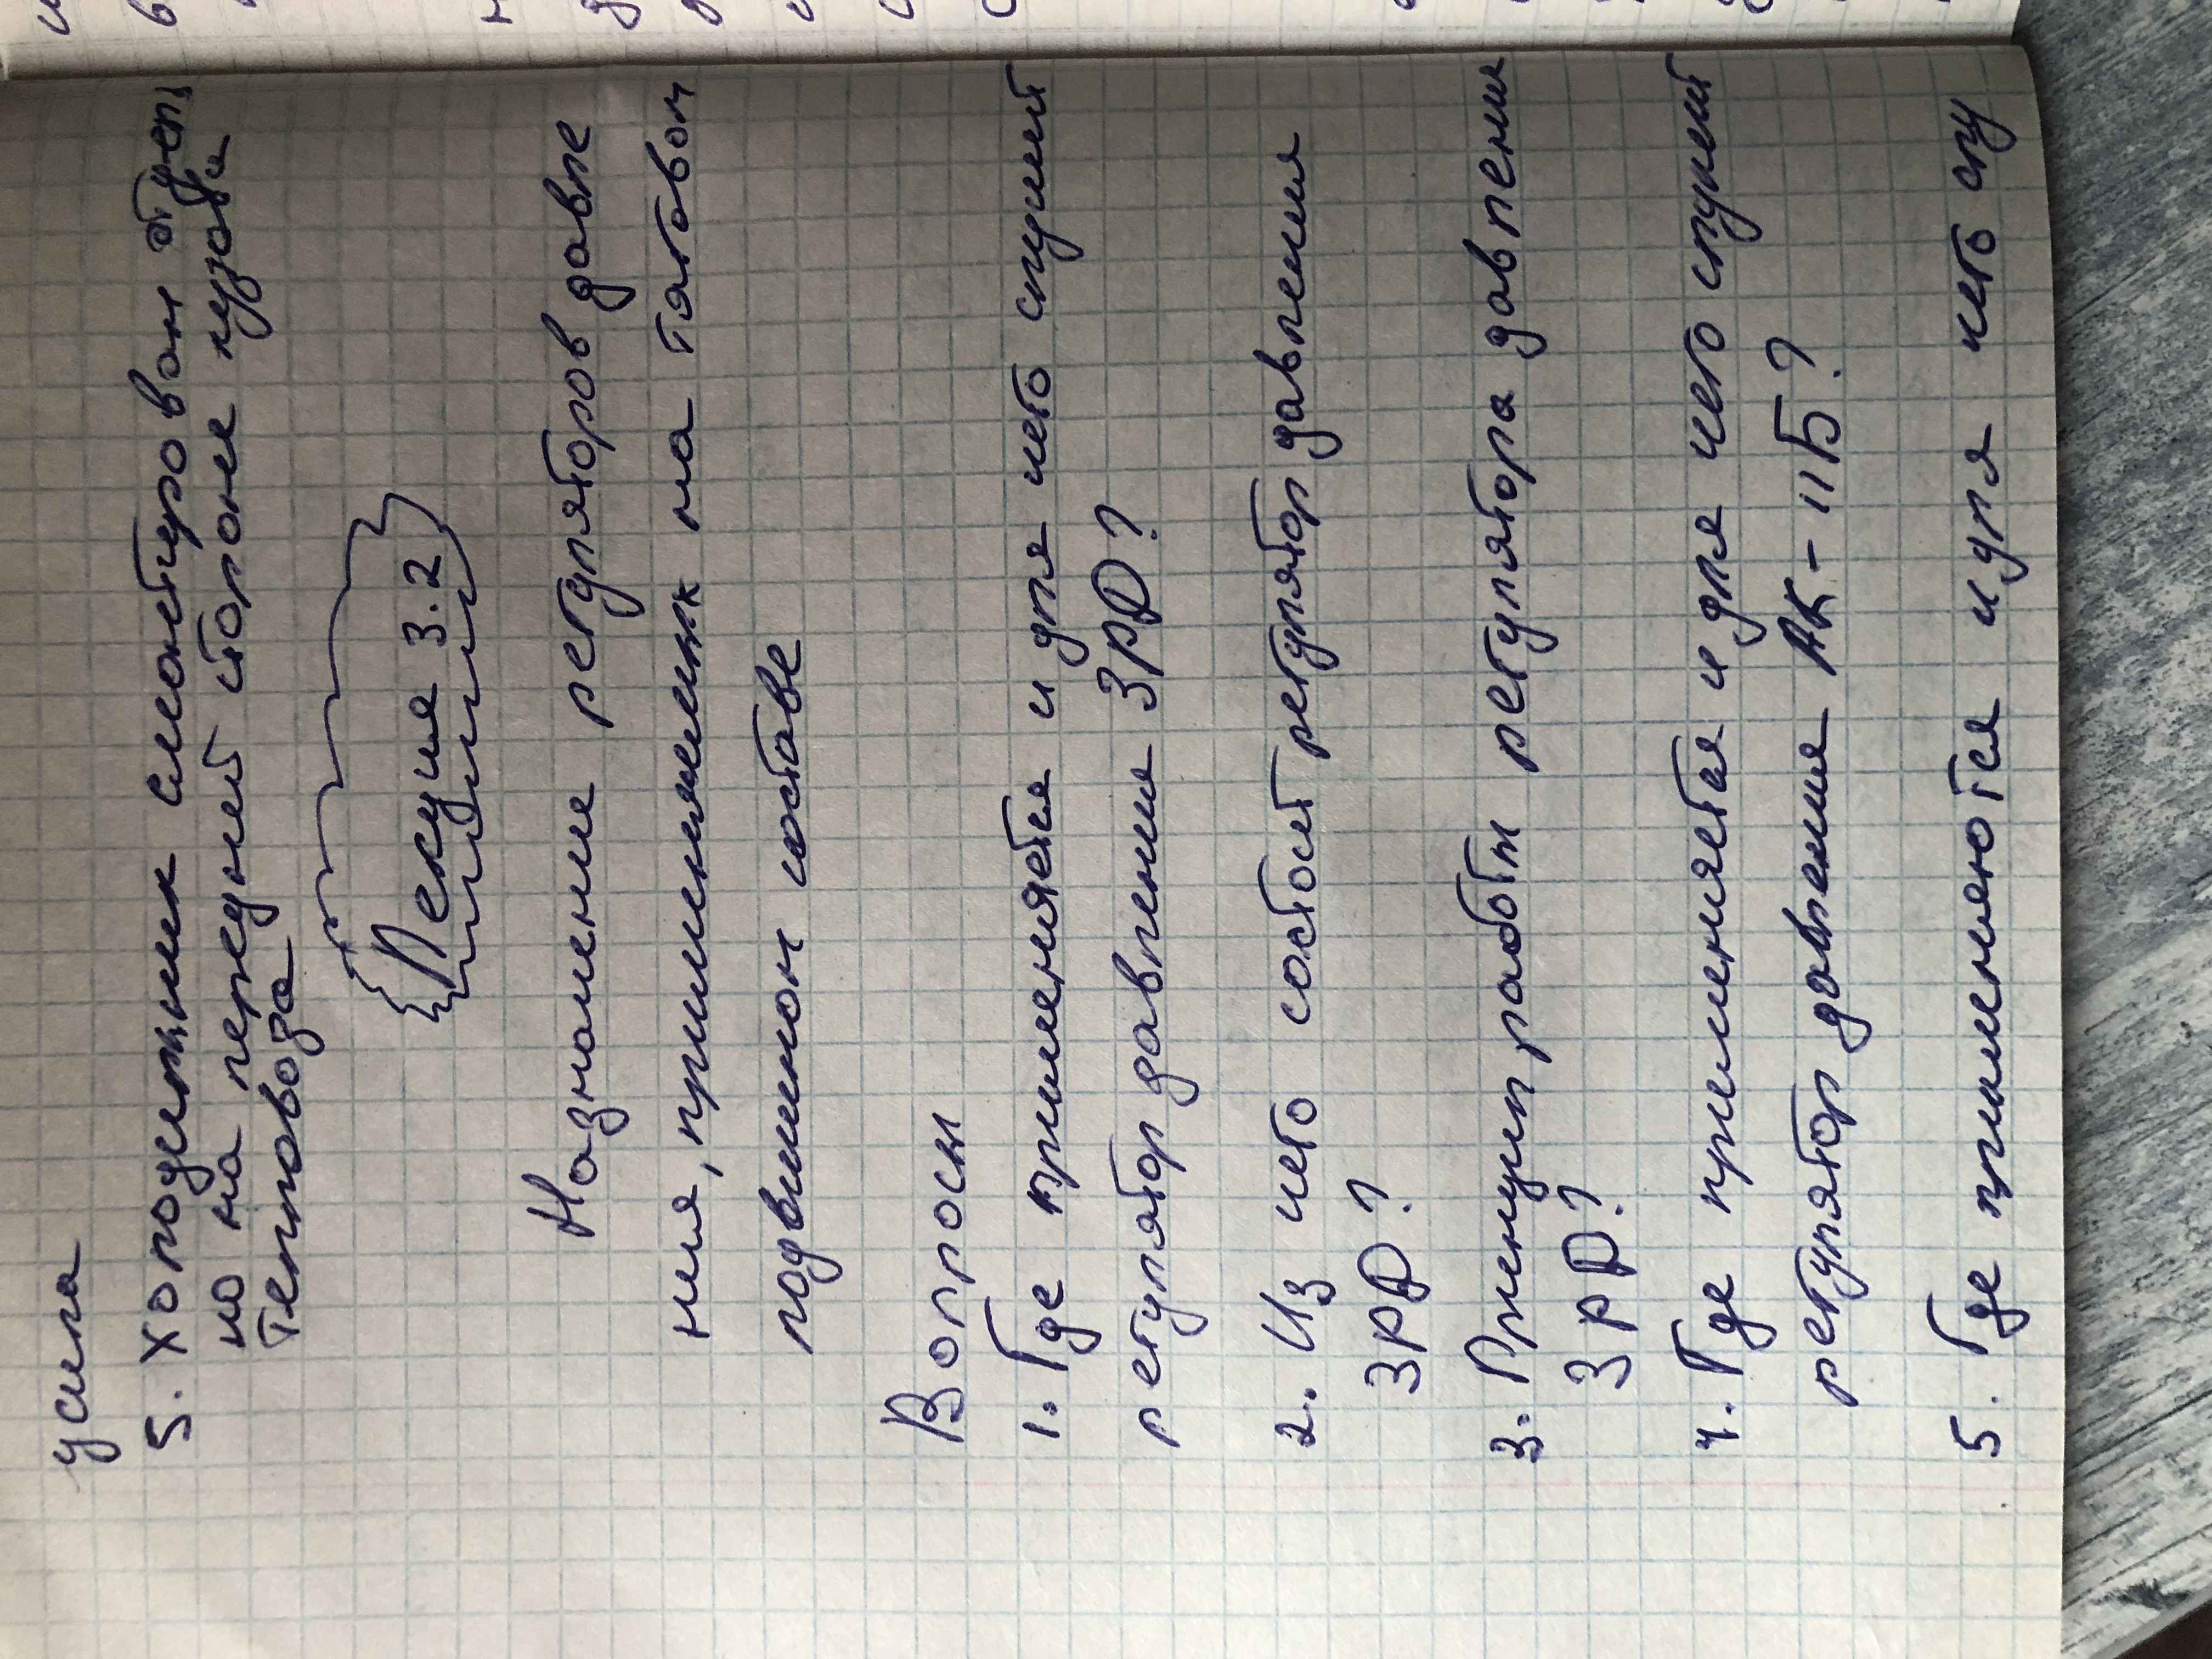 узла
5. Холодильник смонтирован отдель
но на передней стороне кузова
тепловоза
Лекция 3.2
Назначение регуляторов давле
ния, применяемых на тяговом
подвижном составе
Вопросы
1. Где применяется и для чего служит
регулятор давления ЗРД?
2. Из чего состоит регулятор давления
ЗРД?
3. Принцип работы регулятора давления
ЗРД?
4. Где применяется и для чего служит
регулятор давления АК-11Б?
5. Где применяются и для чего слу